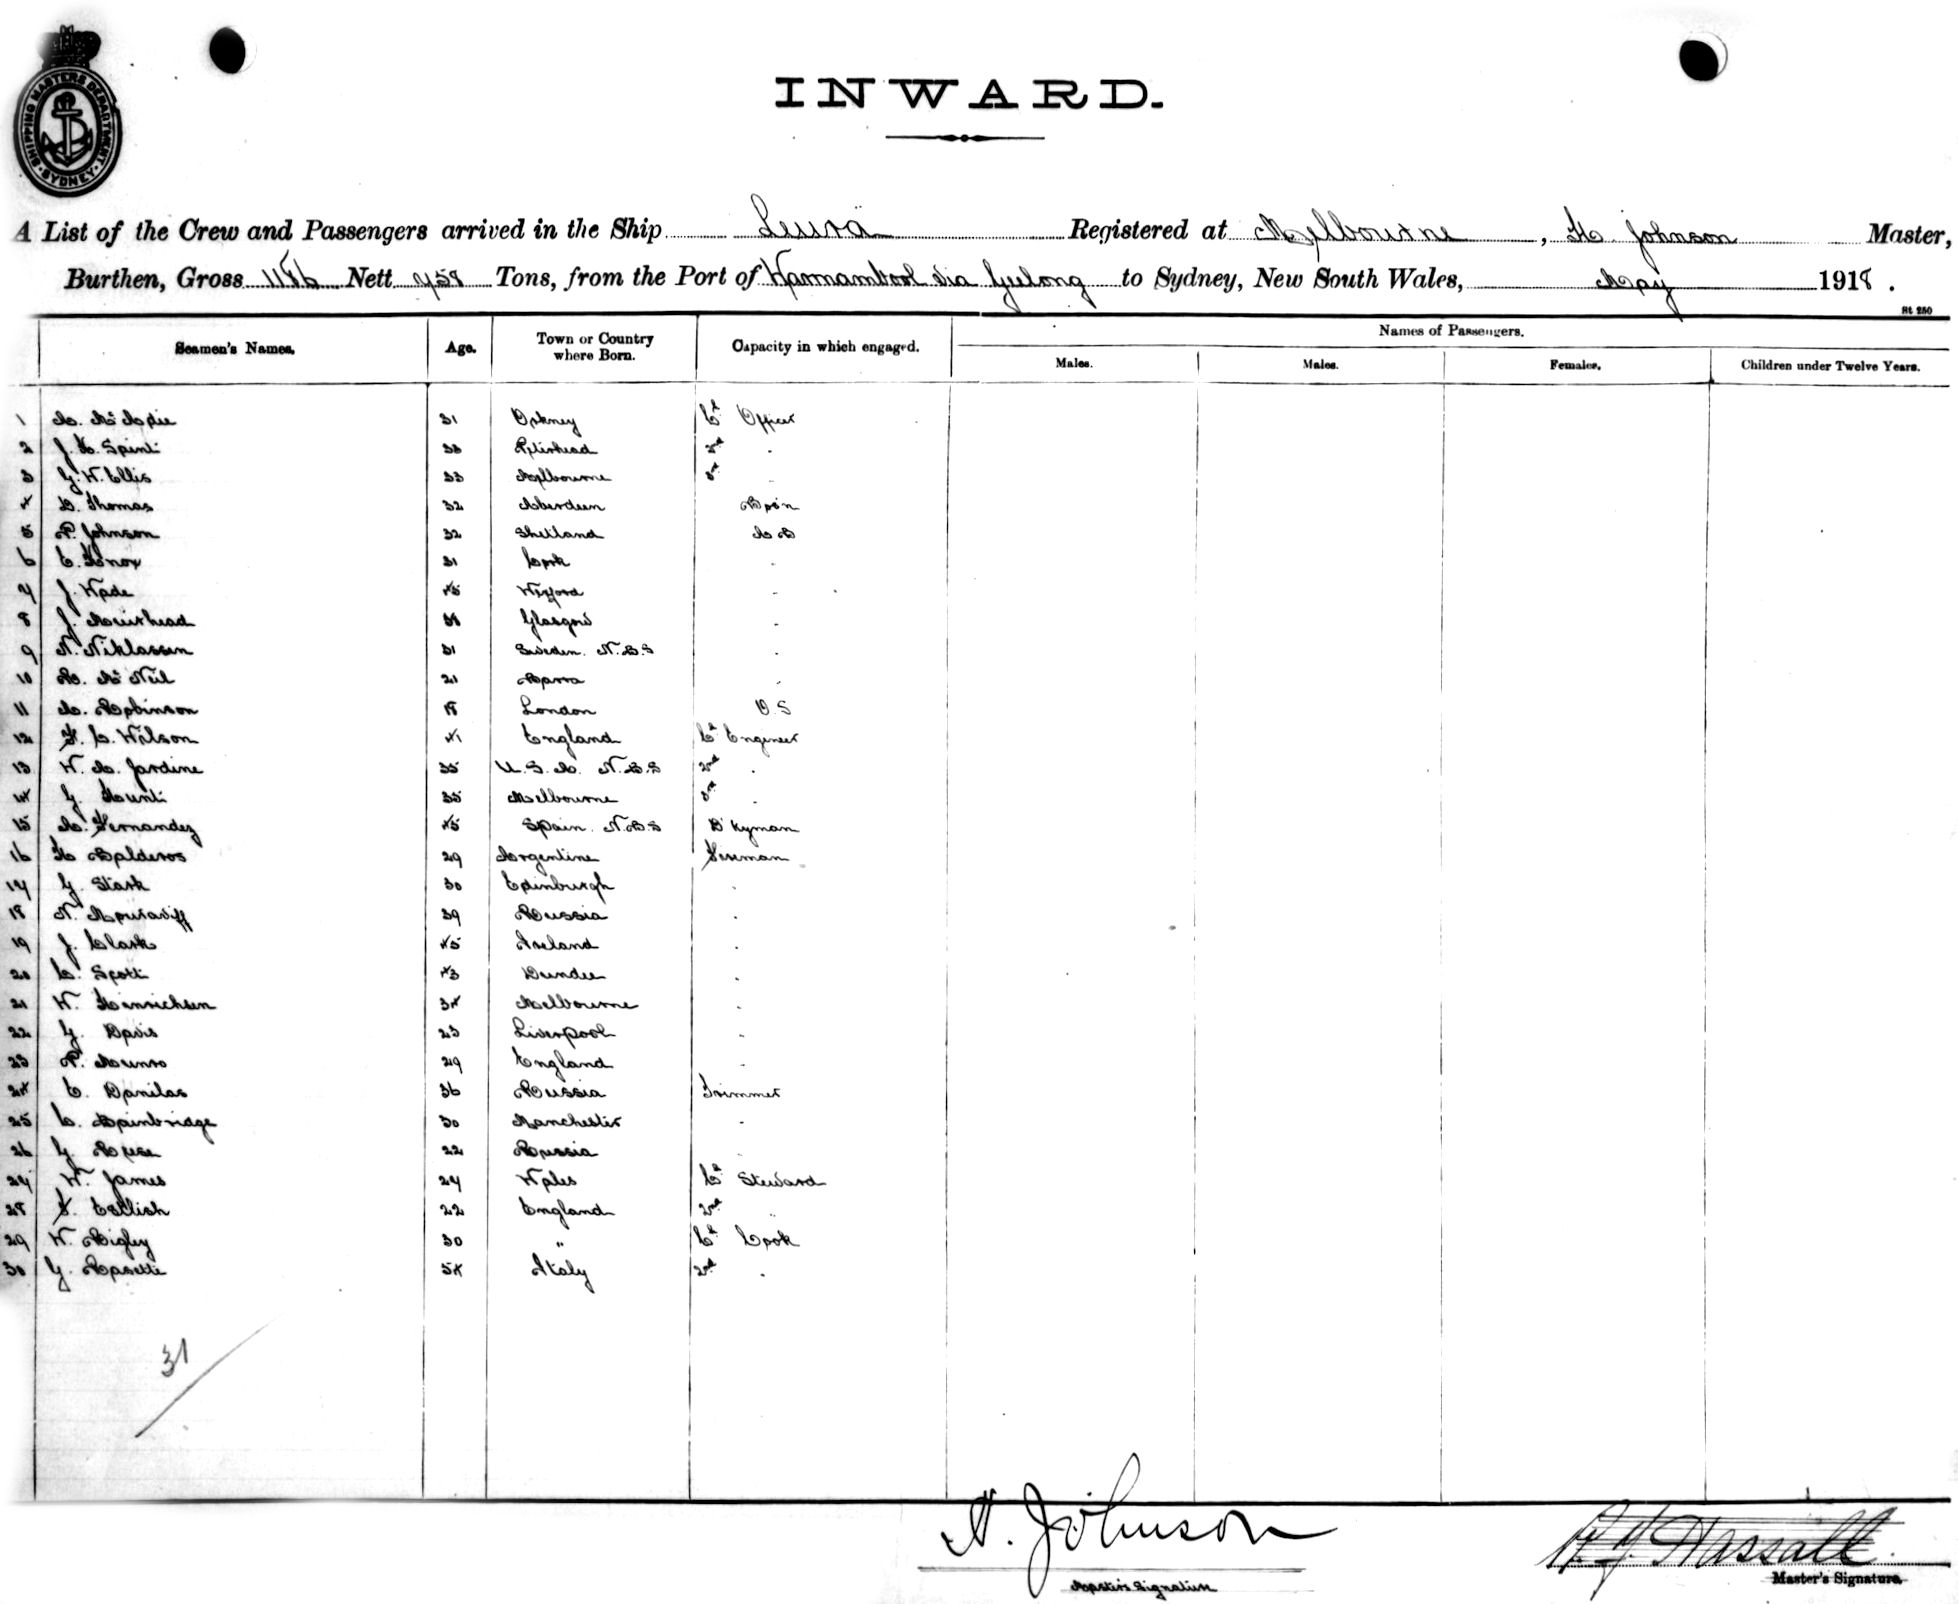 SHIPPING MASTERS DEPARTMENT
SYDNEY
INWARD.
A List of the Crew and Passengers arrived in the Ship Leura Registered at Melbourne, H. Johnson Master,
Burthen, Gross 1186 Nett 758 Tons, from the Port of Warrnambool via Geelong to Sydney, New South Wales, May 1918.
St 250
Seamen's Names. Age. Town or Country where Born. Capacity in which engaged. Names of Passengers.
Males. Males. Females. Children under Twelve Years.
1 A. McAdie 31 Orkney Ch Officer
2 J. H. 33 Peterhead 2nd "
3 G. W. Ellis 33 Melbourne 3rd "
4 D. Thomas 32 Aberdeen Bosn
5 P. Johnson 32 Shetland A B
6 E. Knox 31 Cork "
7 J. Wade 45 Wexford "
8 J. Muirhead Glasgow "
9 N. Niklassen 31 Sweden. N.B.S "
10 R. McNeil 21 Barra "
11 A. Robinson 18 London O.S
12 F. C. Wilson 41 England Ch Engineer
13 W. A. Jardine 35 U.S.A. N.B.S 2nd "
14 G. Hunt 35 Melbourne 3rd "
15 A. Fernandez 45 Spain. N.B.S D'kyman
16 H Balderos 29 Argentine Fireman
17 G. Stark 30 Edinburgh "
18 N. Mouravieff 39 Russia "
19 J. Clark 45 Ireland "
20 C. Scott 43 Dundee "
21 W. Hinrichsen 34 Melbourne "
22 G. Davis 23 Liverpool "
23 P. Munro 29 England "
24 E. Danilas 36 Russia Trimmer
25 C. Bainbridge 30 Manchester "
26 G. 22 Russia "
27 W. James 27 Wales Ch Steward
28 F. 22 England 2nd "
29 W. Bigley 30 " Ch Cook
30 G. Rosetti 54 Italy 2nd "
31
H. Johnson
Master's Signature
Hassall
Master's Signature